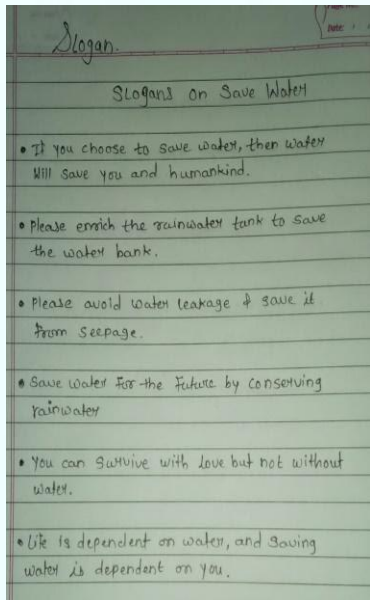 Date:
Slogan.
Slogans on Save Water
• If you choose to save water, then water
Will save you and humankind.
• Please enrich the rainwater tank to save
the water bank.
• Please avoid water leakage & save it
from seepage.
• Save water for the future by conserving
rainwater
• You can survive with love but not without
water.
• Life is dependent on water, and saving
water is dependent on you.